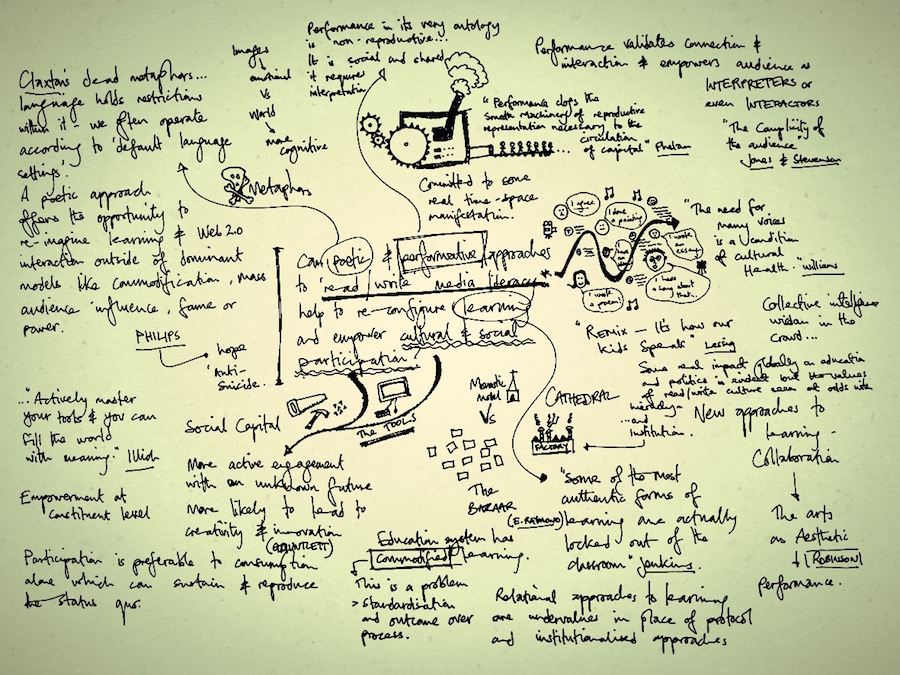 Claxton's dead metaphors...
language holds restrictions
within it - we often operate
according to 'default language
settings'.
A poetic approach
offers its opportunity to
re-imagine learning & Web 2.0
interaction outside of dominant
models like commodification, mass
audience influence, fame or
power.
PHILIPS
hope
'Anti-
Suicide..
Images
emotional
vs
World
more
cognitive
Metaphors
Performance in its very ontology
is "non-reproductive...
It is social and shared
it requires
interpretation
"Performance clogs the
smooth machinery of reproductive
representation necessary to the
circulation
of capital" Phelan
Committed to some
real time-space
manifestation.
Performance validates connection &
interaction & empowers audience as
INTERPRETERS or
even INTERACTORS
"The Complicity of
the audience
Jones & Stevenson
I agree
I done a painting
I wrote
an
essay
I wrote
a poem!
I made
a song about
that..
"The need for
many voices
is a condition
of cultural
Health." Williams
Can poetic & performative approaches
to 'read/write media literacy
help to re-configure learning
and empower cultural & social
participation?
"Remix - It's how our
kids Speak" Lessig
Collective intelligence
wisdom in the
crowd...
Some real impact globally on education
and politics is evident but the values
of read/write culture seem at odds with
hierarchy
...and
institution.
New approaches to
learning -
Collaboration
The arts
as Aesthetic
ROBINSON
Performance.
..."Actively master
your tools & you can
fill the world
with meaning." Illich
Empowerment at
constituent level
Participation is preferable to consumption
alone which can sustain & reproduce
the status quo.
Social Capital
The TOOLS
More active engagement
with an unknown future
More likely to lead to
creativity & innovation
(GAUNTLETT)
Monastic
model
vs
CATHEDRAL
FACTORY
The
BAZAAR
(E. RAYMOND)
"Some of the most
authentic forms of
learning are actually
locked out of the
classroom" Jenkins.
Education system has
commodified learning.
This is a problem
> standardisation
and outcome over
process.
Relational approaches to learning
are undervalues in place of protocol
and institutionalised approaches